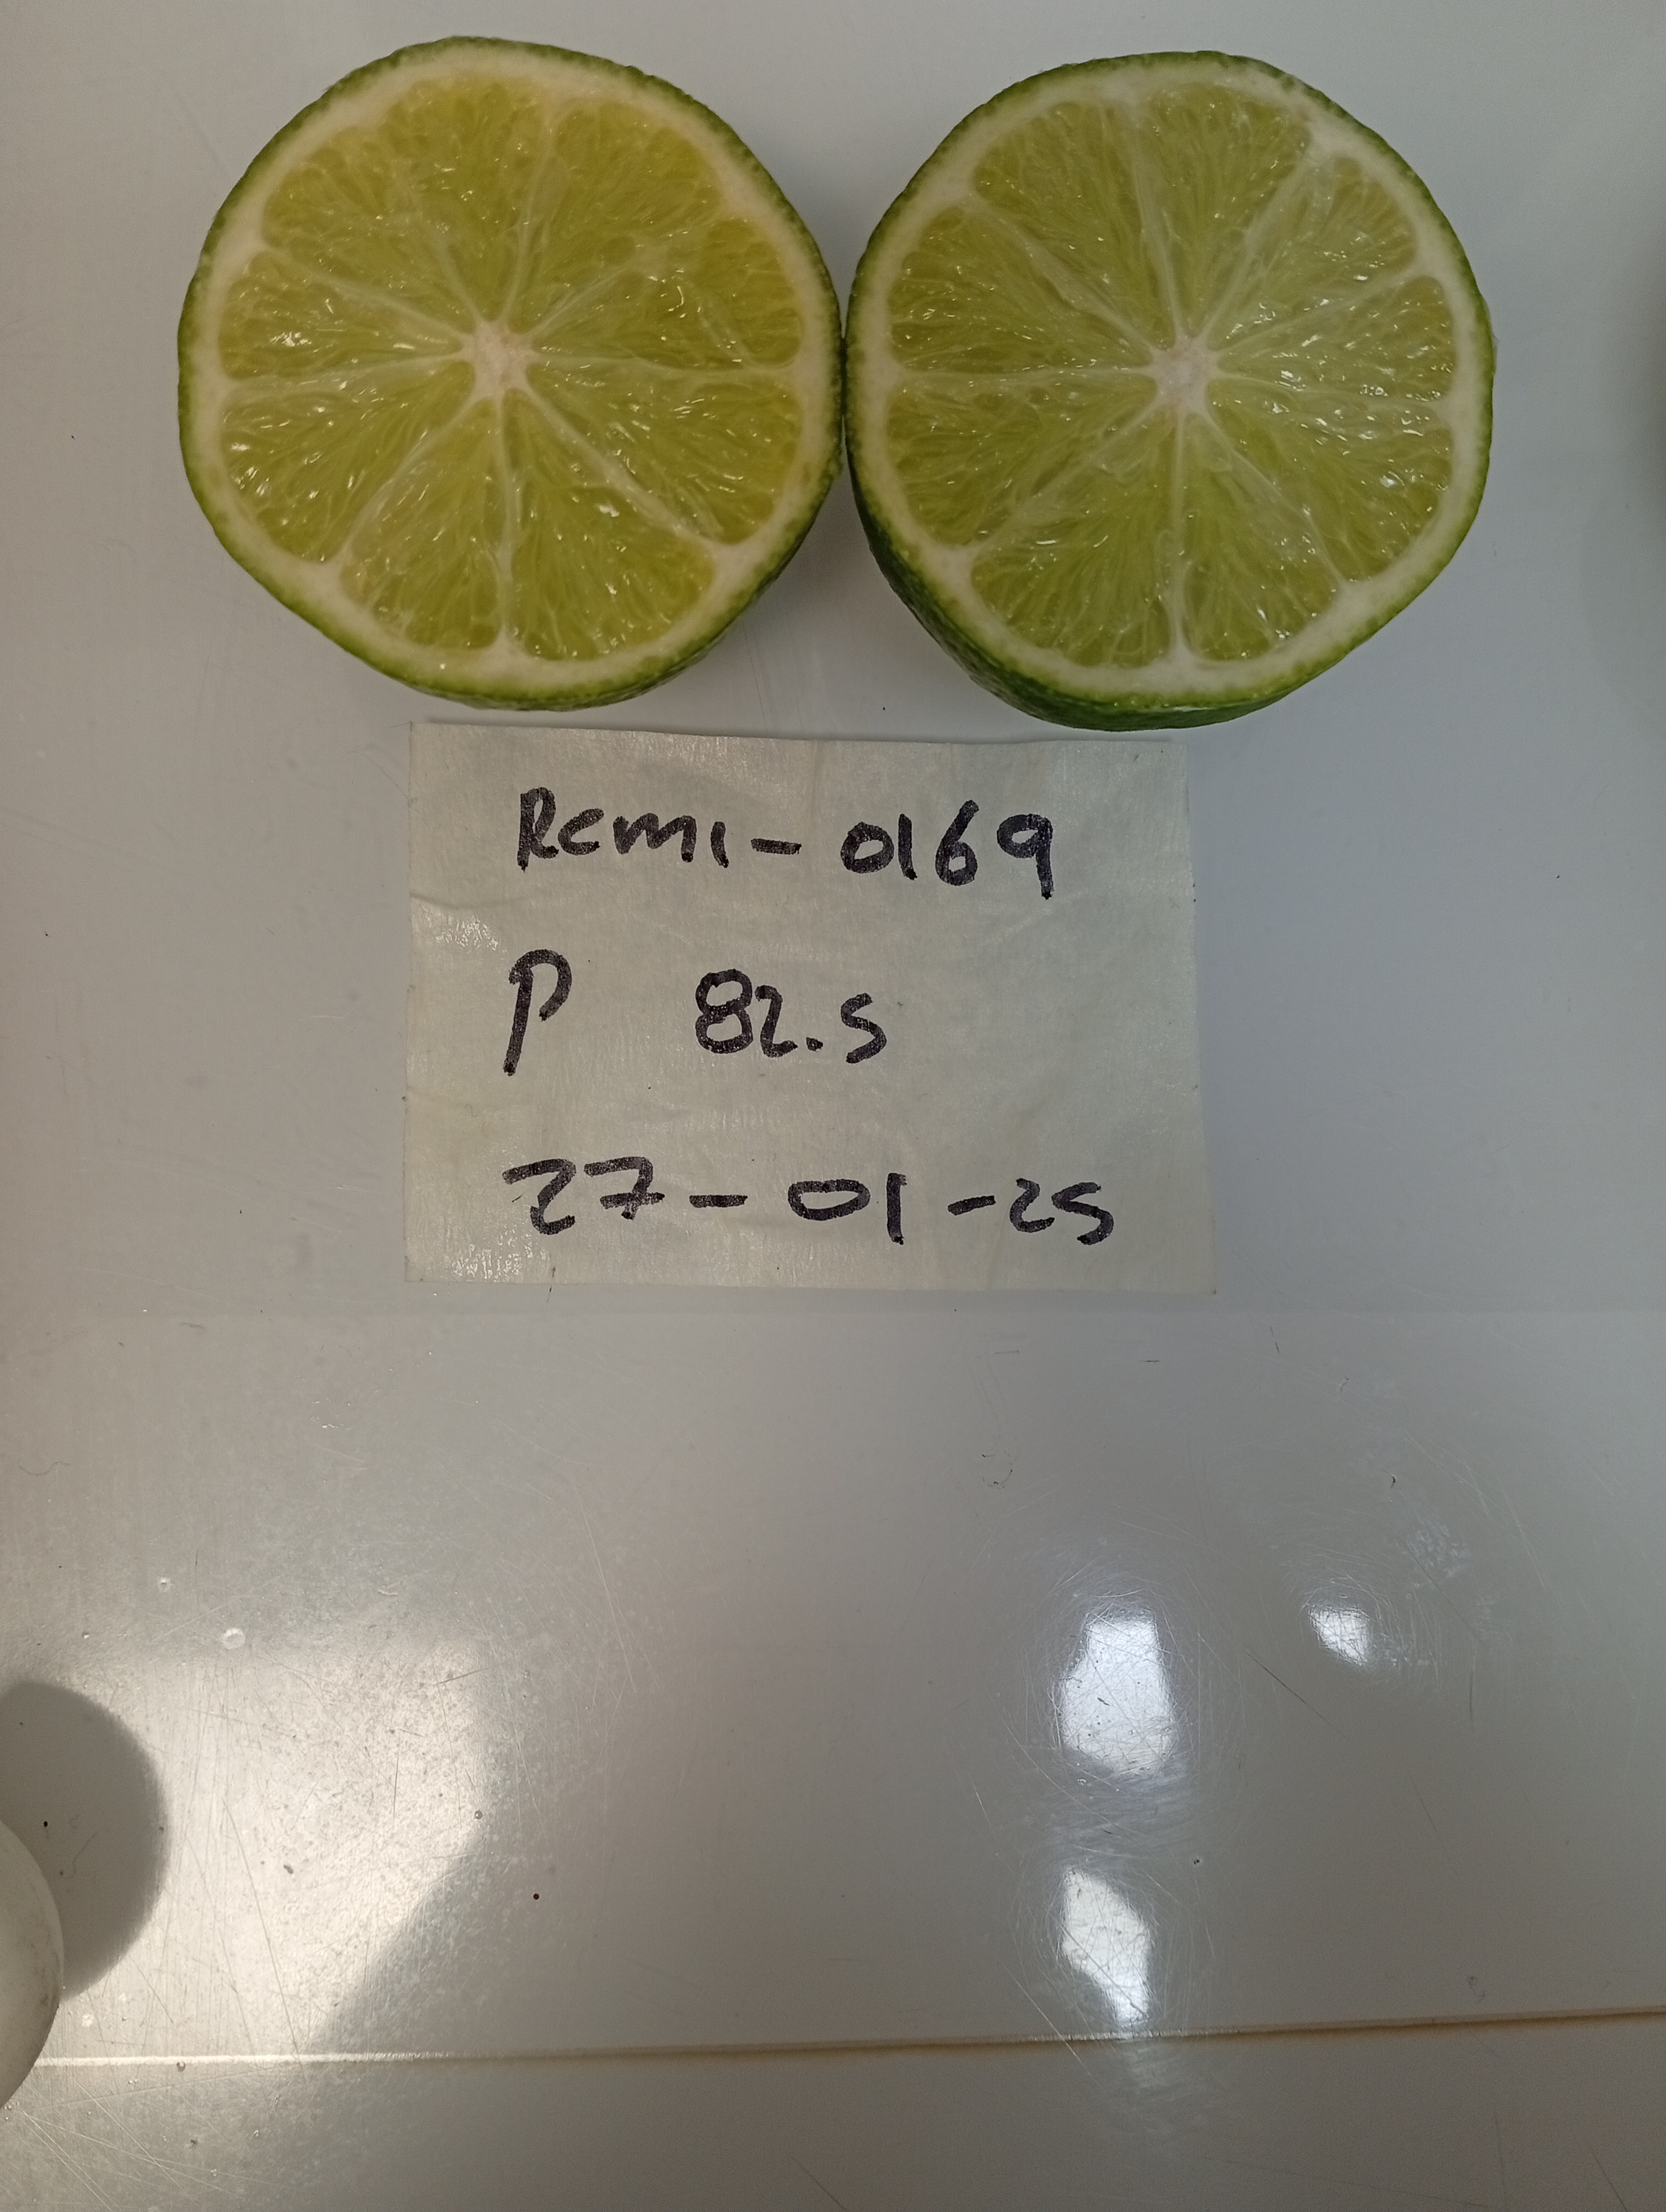 Rcm1-0169
P 82.5
27-01-25